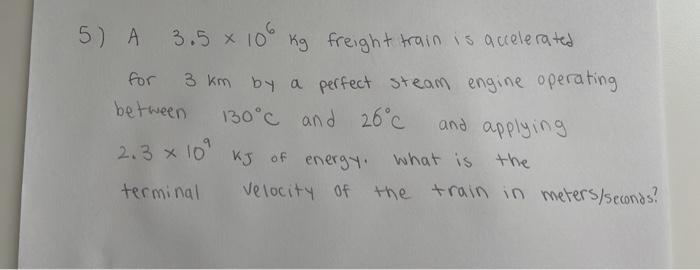 5) A 3.5 × 10⁶ kg freight train is accelerated
for 3 km by a perfect steam engine operating
between 130°C and 26°C and applying
2.3 × 10⁹ KJ of energy. What is the
terminal velocity of the train in meters/seconds?